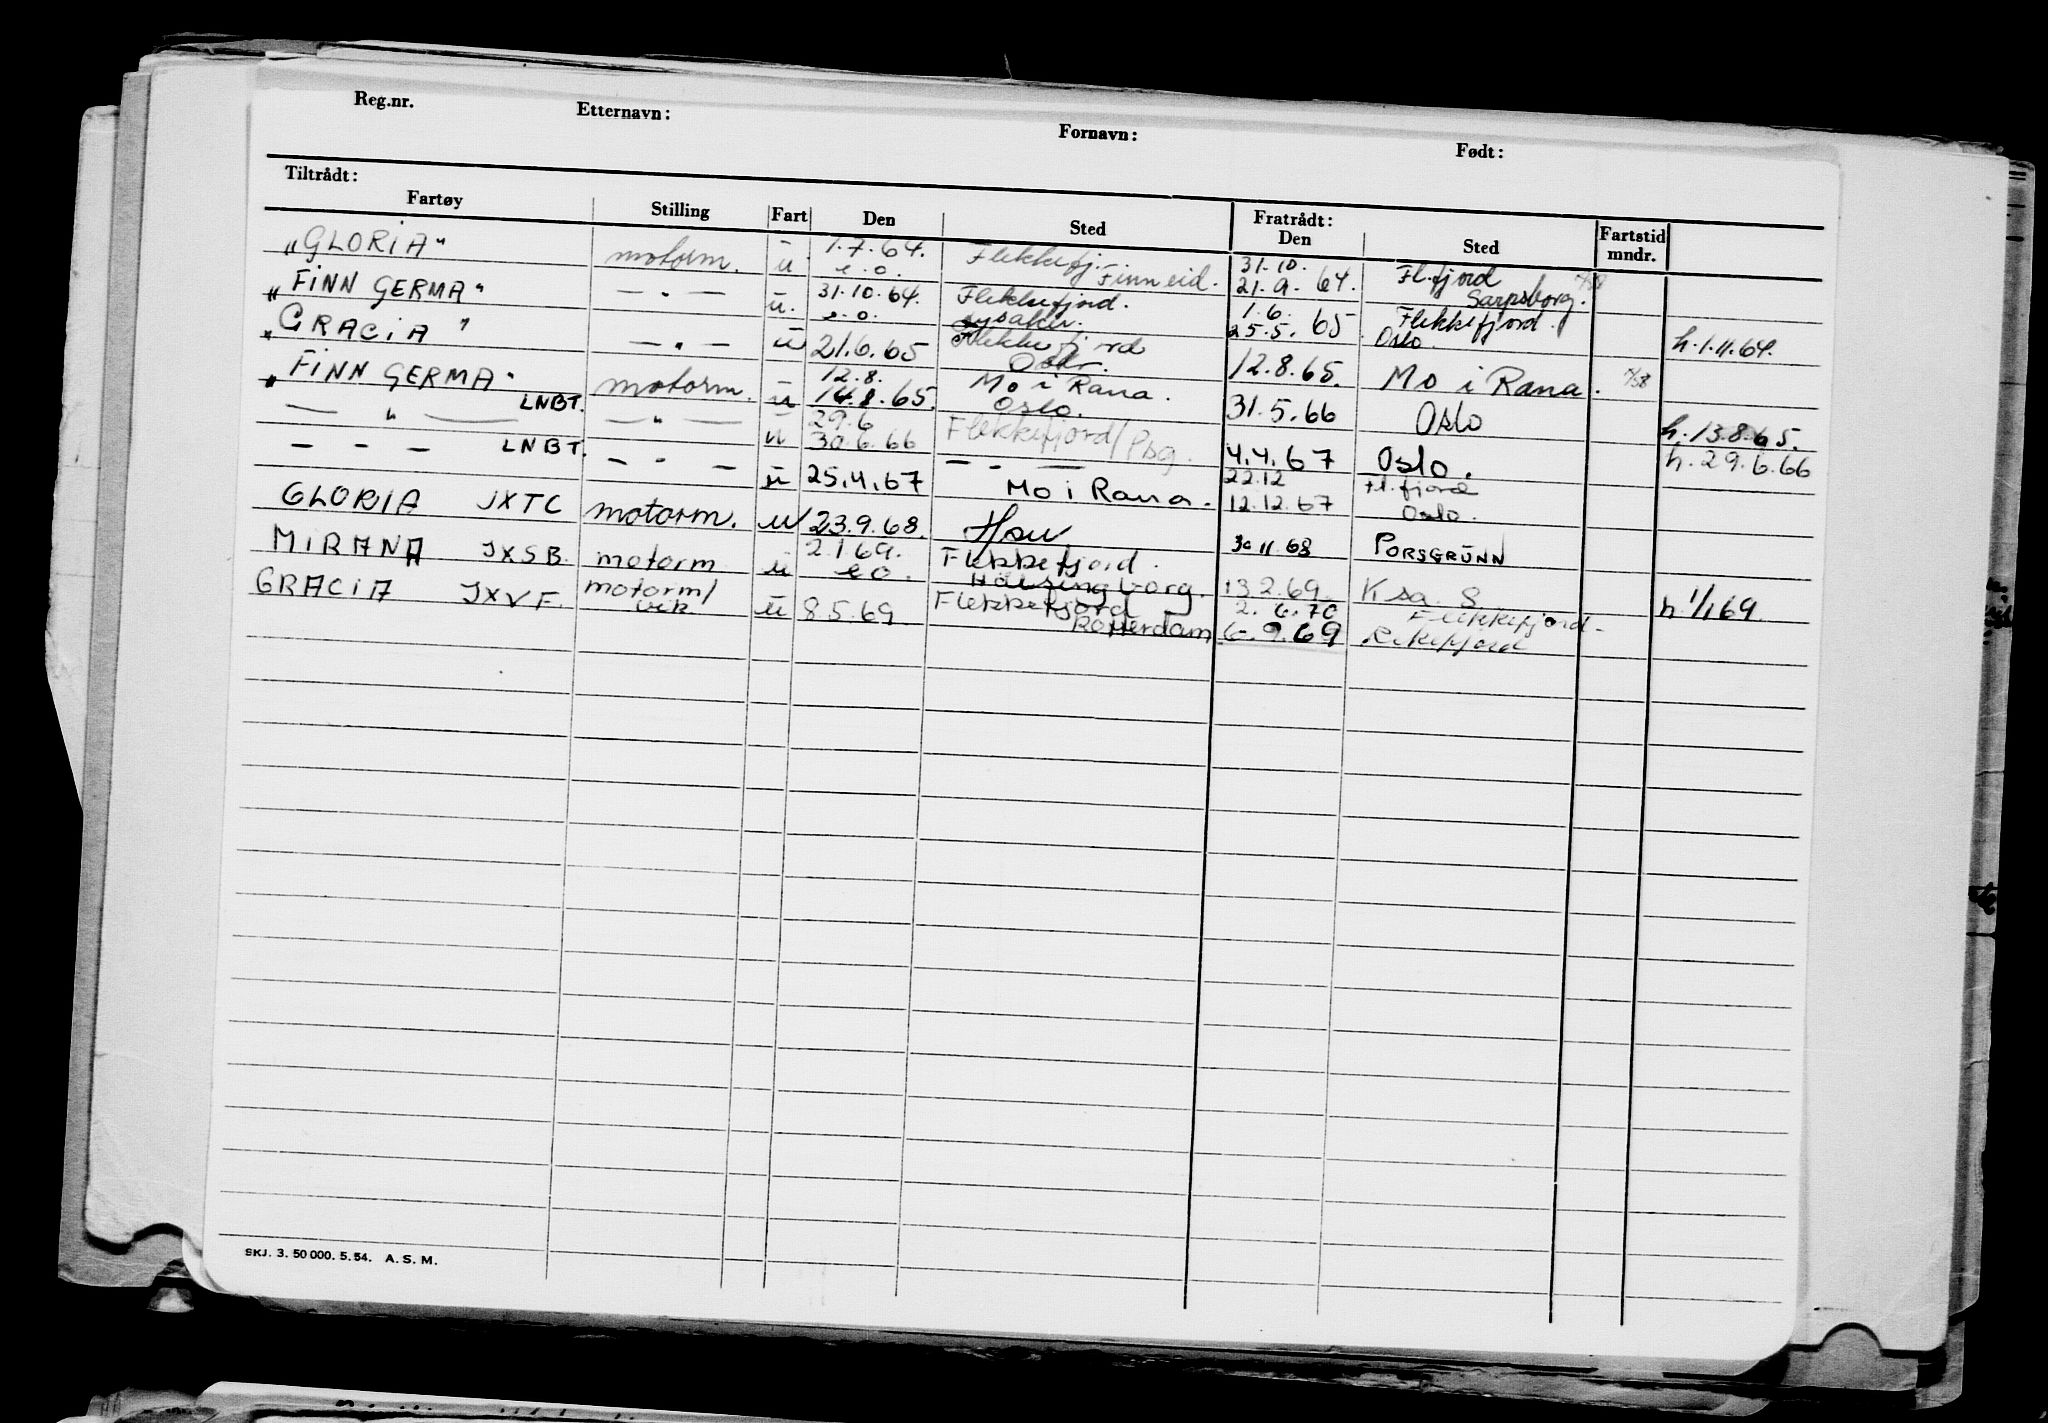 Reg.nr. Etternavn: Fornavn: Født:
Tiltrådt: Fratrådt:
Fartøy Stilling Fart Den Sted Den Sted Fartstid mndr.
„GLORIA" motorm. u 1.7.64. Flekkefj. 31.10. Fl.fjord
e.o. Finneid. 21.9.64. Sarpsborg.
„FINN GERMA" — " — u. 31.10.64. Flekkefjord. 1.6. Flekkefjord. h. 1.11.64.
e.o. Lysaker. 25.5.65 Oslo.
„GRACIA" — " — u 21.6.65 Flekkefjord 12.8.65. Mo i Rana.
„FINN GERMA" LNBT. motorm. u 12.8. Mo i Rana. 31.5.66 Oslo h. 13.8.65.
14.8.65. Oslo.
— " — LNBT. — " — u 29.6 Flekkefjord/Psg. 4.4.67 Oslo. h. 29.6.66
30.6.66
— — — — " — u 25.4.67 — " — Mo i Rana. 22.12 Fl.fjord
12.12.67 Oslo.
GLORIA JXTC motorm. u 23.9.68. Hsu 30.11.68 PORSGRUNN
MIRANA JXSB. motorm u 2.1.69. Flekkefjord. 13.2.69. Ksa. S h. 1/1 69.
e o. Hälsingborg.
GRACIA JXVF. motorm/ u 8.5.69 Flekkefjord 2.6.70 Flekkefjord
Rotterdam 6.9.69 Rekefjord
SKJ. 3. 50 000. 5. 54. A. S. M.